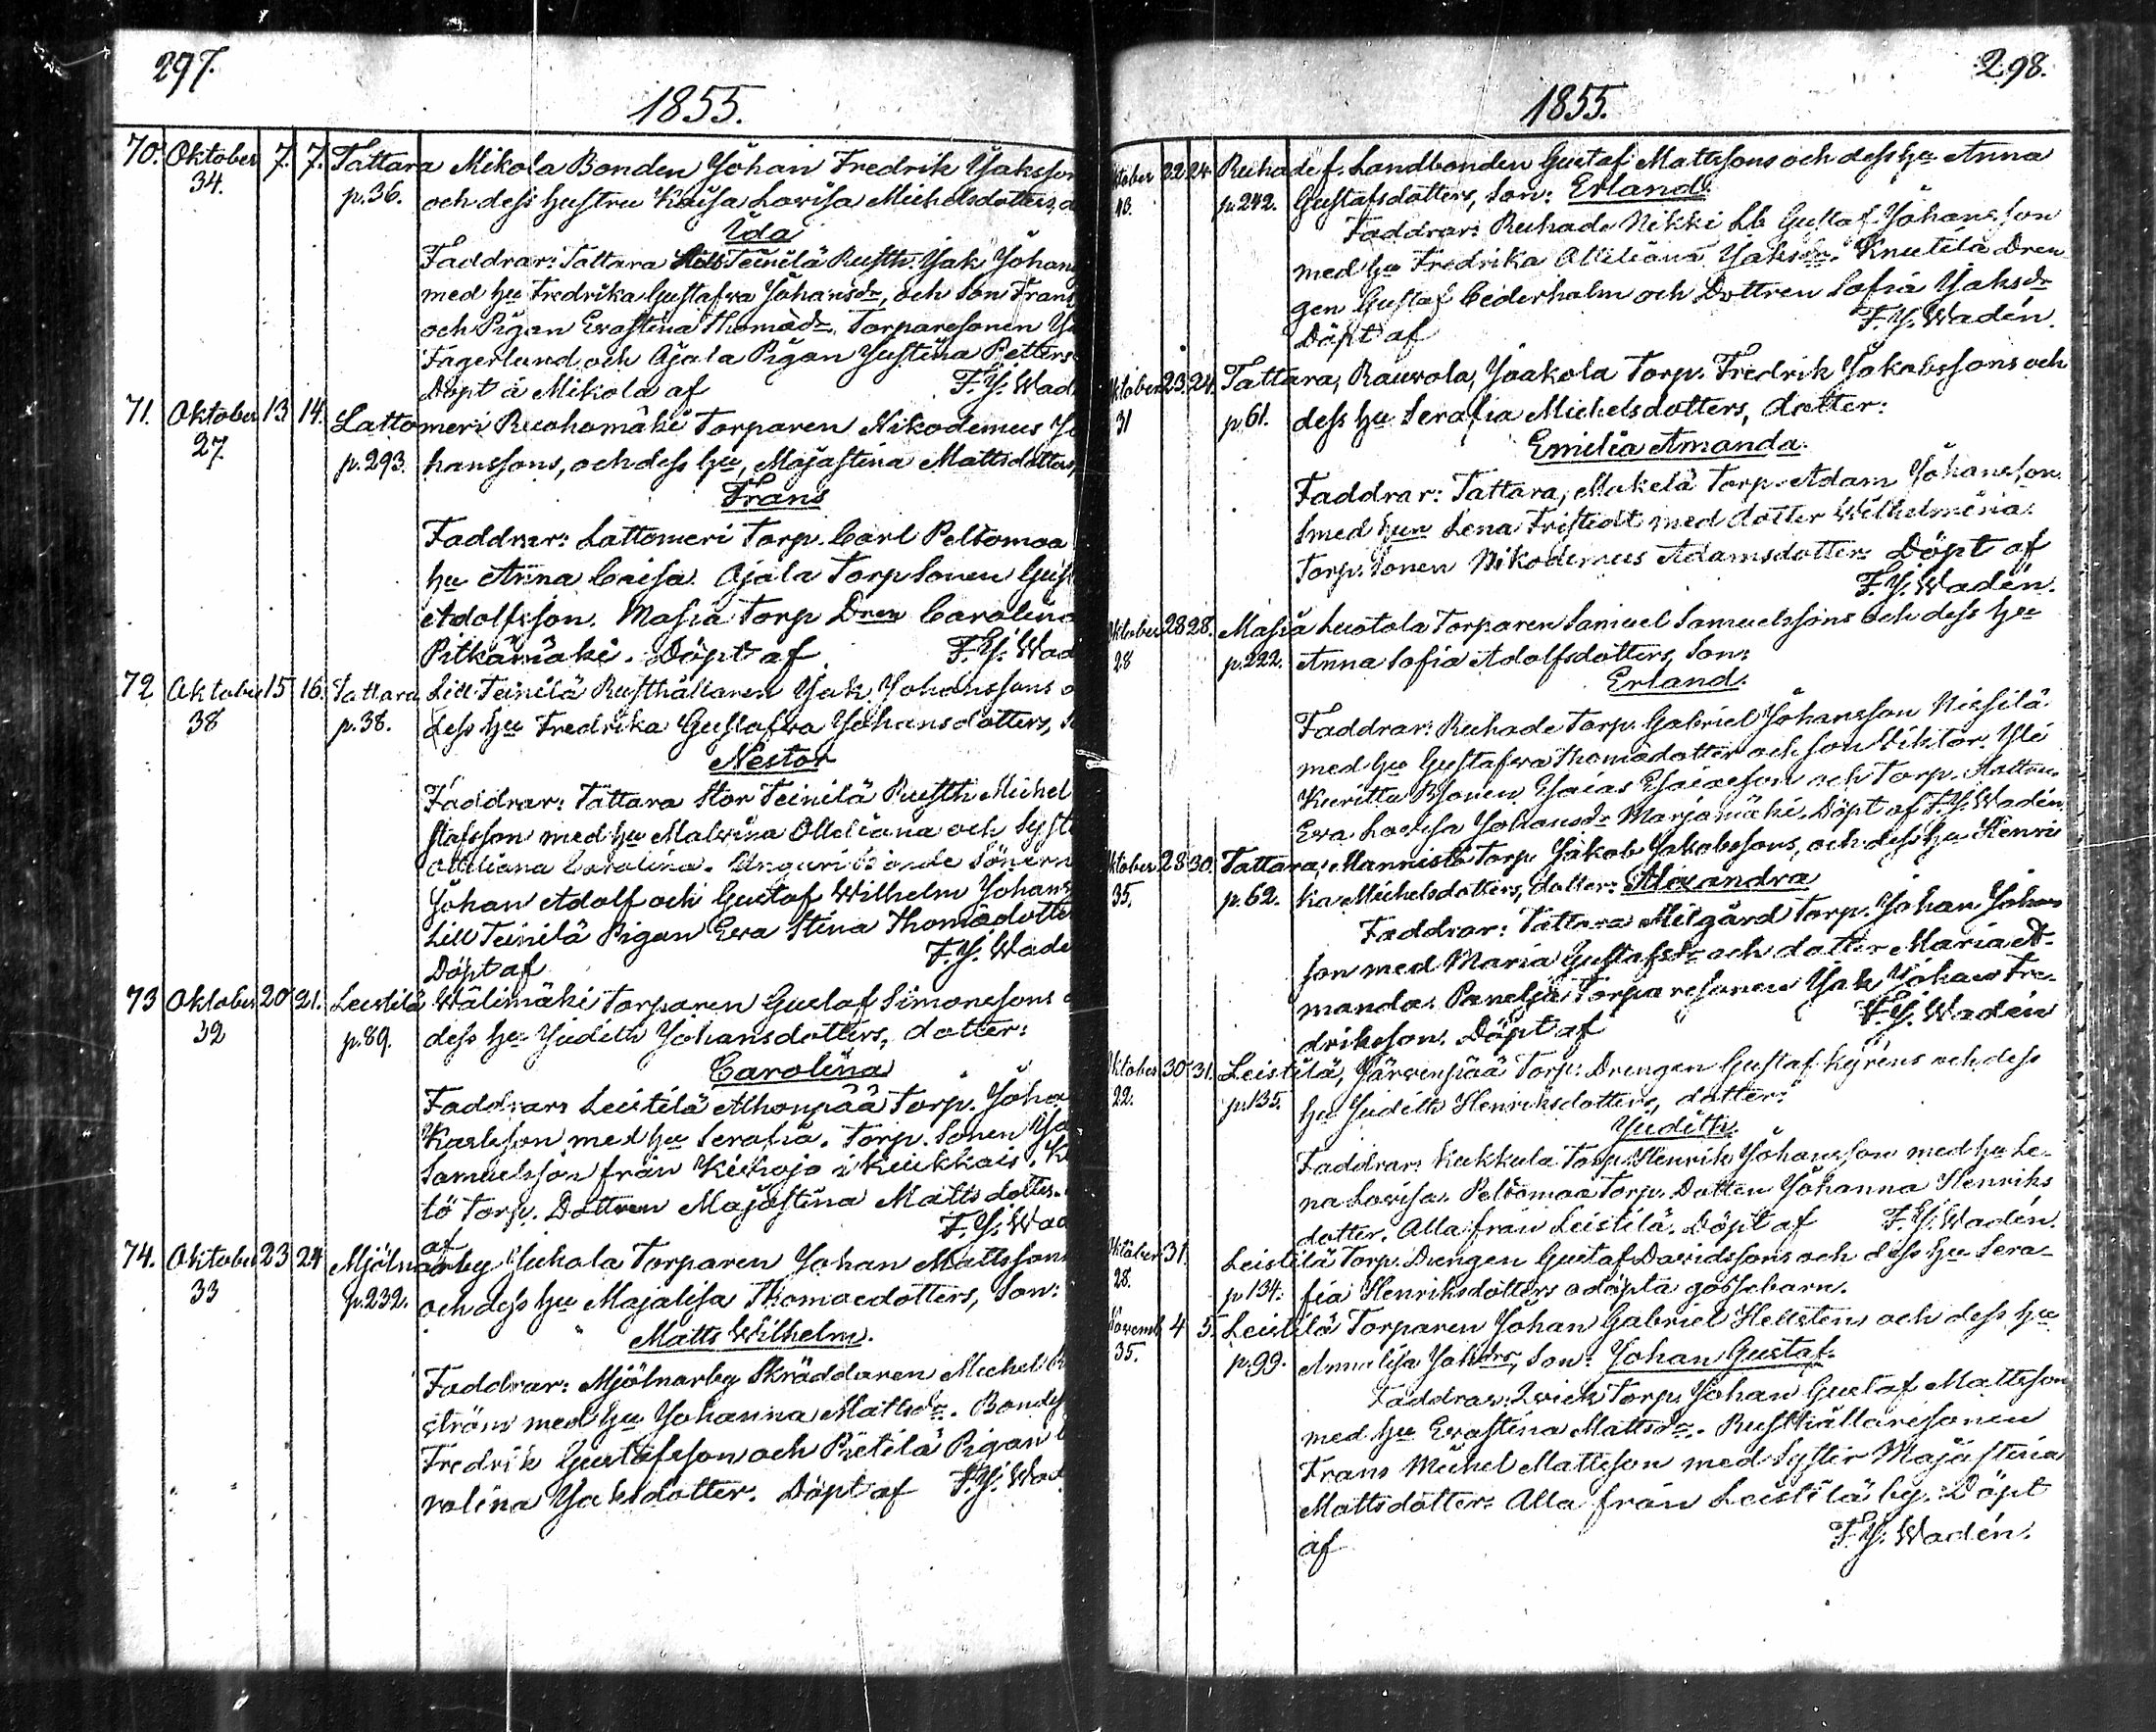 297.
1855.
70. Oktober 7. 7. Tattara Mikola Bonden Johan Fredrik Jaksson
34. p. 36. och dess hustru Kaisa Lovisa Michelsdotters, d
Ida
Faddrar: Tattara Teinilä Rusth. Jak Johans
med hu Fredrika Gustafva Johansdr, och Son Frans
och Pigan Evastina Thomadr. Torparesonen Ja
Fagerlund och Ajala Pigan Justina Petters
Döpt á Mikola af F. J. Wad
71. Oktober 13 14. Lattomeri Ruohomäki Torparen Nikodemus Jo
27. p. 293. hanssons, och dess hu, Majastina Mattsdotters,
Frans
Faddrar: Lattomeri Torp. Carl Peltomaa
hu Anna Caisa. Ajala Torp Sonen Gust
Adolfsson. Masia Torp Dren Carolina
Pitkämäki. Döpt af F. J. Wad
72 Oktober 15 16. Tattara Lill Teinilä Rusthållaren Jak Johanssons o
38 p. 38. dess hu Fredrika Gustafva Johansdotters, S
Nestor
Faddrar: Tattara Stor Teinilä Rusth. Michel
stafsson med hu Malvina Ottiliana och Syst
Ottiliana Carolina. Unguri Bonde Sönern
Johan Adolf och Gustaf Wilhelm Johans
Lill Teinilä Pigan Eva Stina Thomadotte
Döpt af F. J. Wade
73 Oktober 20 21. Leistilä Wälimäki Torparen Gustaf Simonssons o
32 p. 89. dess hu Judith Johansdotters, dotter:
Carolina
Faddrar: Leistilä Alhonpää Torp. Joha
Karlsson med hu Serafia. Torp. Sonen Jo
Samuelsson från Kiukais. K
tö Torp. Dottren Majastina Matts dotter.
af F. J. Wad
74. Oktober 23 24 Mjölnarby Jukola Torparen Johan Mattssons
33 p. 232. och dess hu Majalisa Thomaedotters, Son:
Matts Wilhelm.
Faddrar: Mjölnarby Skräddaren Michel
ström med hu Johanna Mattsdr. Bondes
Fredrik Gustafsson och Pietilä Pigan
rolina Jaksdotter. Döpt af F. J. Wad
298.
1855.
ktober 22 24 Ruhade f. Landbonden Gustaf Mattssons och dess hu Anna
p. 242. Gustafsdotters, Son: Erland.
Faddrar: Ruhade Nikki Lb Gustaf Johansson
med hu Fredrika Ottiliana Jaksdr. Knutila Dren
gen Gustaf Cederholm och Dottren Sofia Jaksdr
Döpt af F. J. Wadén.
ktober 23. 24. Tattara, Rauvola, Jaakola Torp. Fredrik Jakobssons och
31 p. 61. dess hu Serafia Michelsdotters, dotter:
Emilia Amanda.
Faddrar: Tattara, Makelä Torp. Adam Johansson
Lena Fristedt med dotter Wilhelmina.
Torp. Sonen Nikodemus Adamsdotter. Döpt af
F. J. Wadén.
Oktober 28 28. Masia Luotola Torparen Samuel Samuelssons och dess hu
28 p. 222. Anna Sofia Adolfsdotters, Son:
Erland.
Faddrar: Ruhade Torp. Gabriel Johansson Nissilä.
med hu Gustafva Thomadotter och Son Viktor. Yli
Kuritta Esaias Esaiasson och Torp.
Eva Lovisa Johansdr Marjamäki. Döpt af F. J. Wadén
ktober 28 30. Tattara, Mannistö Torp. Jakob Jakobssons, och dess hu Henri
35. p. 62. ka Michelsdotters, dotter: Alexandra
Faddrar: Tattara Torp. Johan Johans
son med Maria Gustafsdr och dotter Maria A-
manda. Panelja Torparesonen Jak Johan Fre-
driksson. Döpt af F. J. Wadén
ktober 30. 31. Leistilä, Järvenpää Torp. Drengen Gustaf Kyréns och dess
22. p. 135. hu Judith Henriksdotters, dotter:
Judith.
Faddrar: Kukkula Torp. Henrik Johansson med hu Le-
na Lovisa. Peltomaa Torp. Dotten Johanna Henriks
dotter. Alla från Leistilä. Döpt af F. J. Wadén.
ktober 31. Leistilä Torp. Drengen Gustaf Davidssons och dess hu Sera-
28. p 134. fia Henriksdotters odöpta gossebarn.
Novemb 4 5. Leistilä Torparen Johan Gabriel Hellstens och dess hu
35. p. 99. Annalisa Jakdrs, Son: Johan Gustaf.
Faddrar: Torp. Johan Gustaf Mattsson
med hu Evastina Mattsdr. Rusthållaresonen
Frans Michel Mattsson med Syster Majastina
Mattsdotter. Alla från Leistilä by. Döpt
af F. J. Wadén.